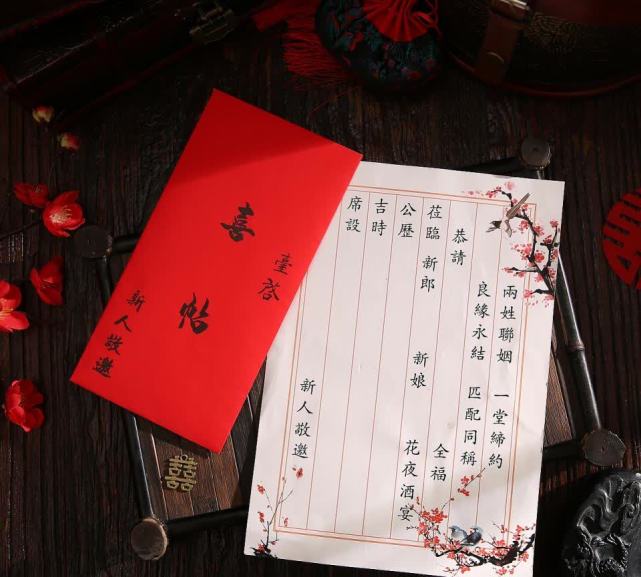 臺啓
喜帖
新人敬邀
兩姓聯姻 一堂締約
良緣永結 匹配同稱
恭請 全福
莅臨 新郎 新娘 花夜酒宴
公歷
吉時
席設
新人敬邀
囍